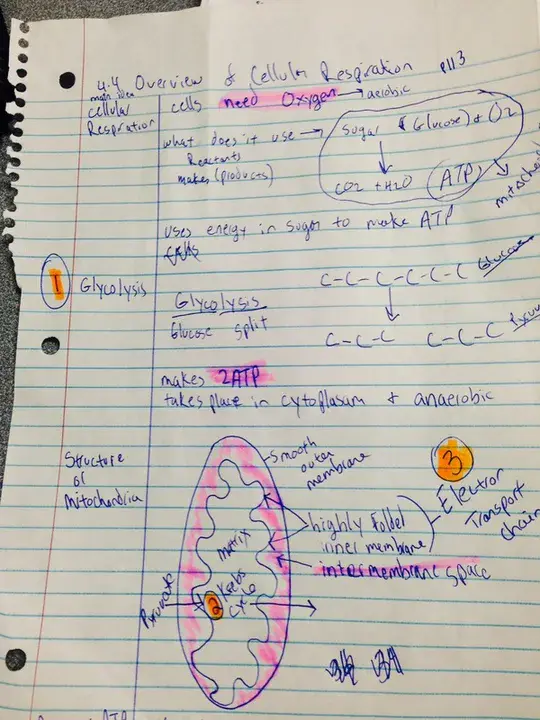 4.4 Overview of Cellular Respiration p113
main idea
cellular
Respiration
cells need Oxygen → aerobic
what does it use →
Reactants
makes (products)
Sugar (Glucose) + O2
CO2 + H2O ATP
uses energy in sugar to make ATP
1 Glycolysis
Glycolysis
Glucose split
C-C-C-C-C-C Glucose
C-C-C C-C-C
makes 2ATP
takes place in cytoplasum + anaerobic
Structure
of
Mitochondria
smooth
outer
membrane
matrix
highly folded
inner membrane
intermembrane space
3
Electron
Transport
chain
Pyruvate
2
Krebs
cycle